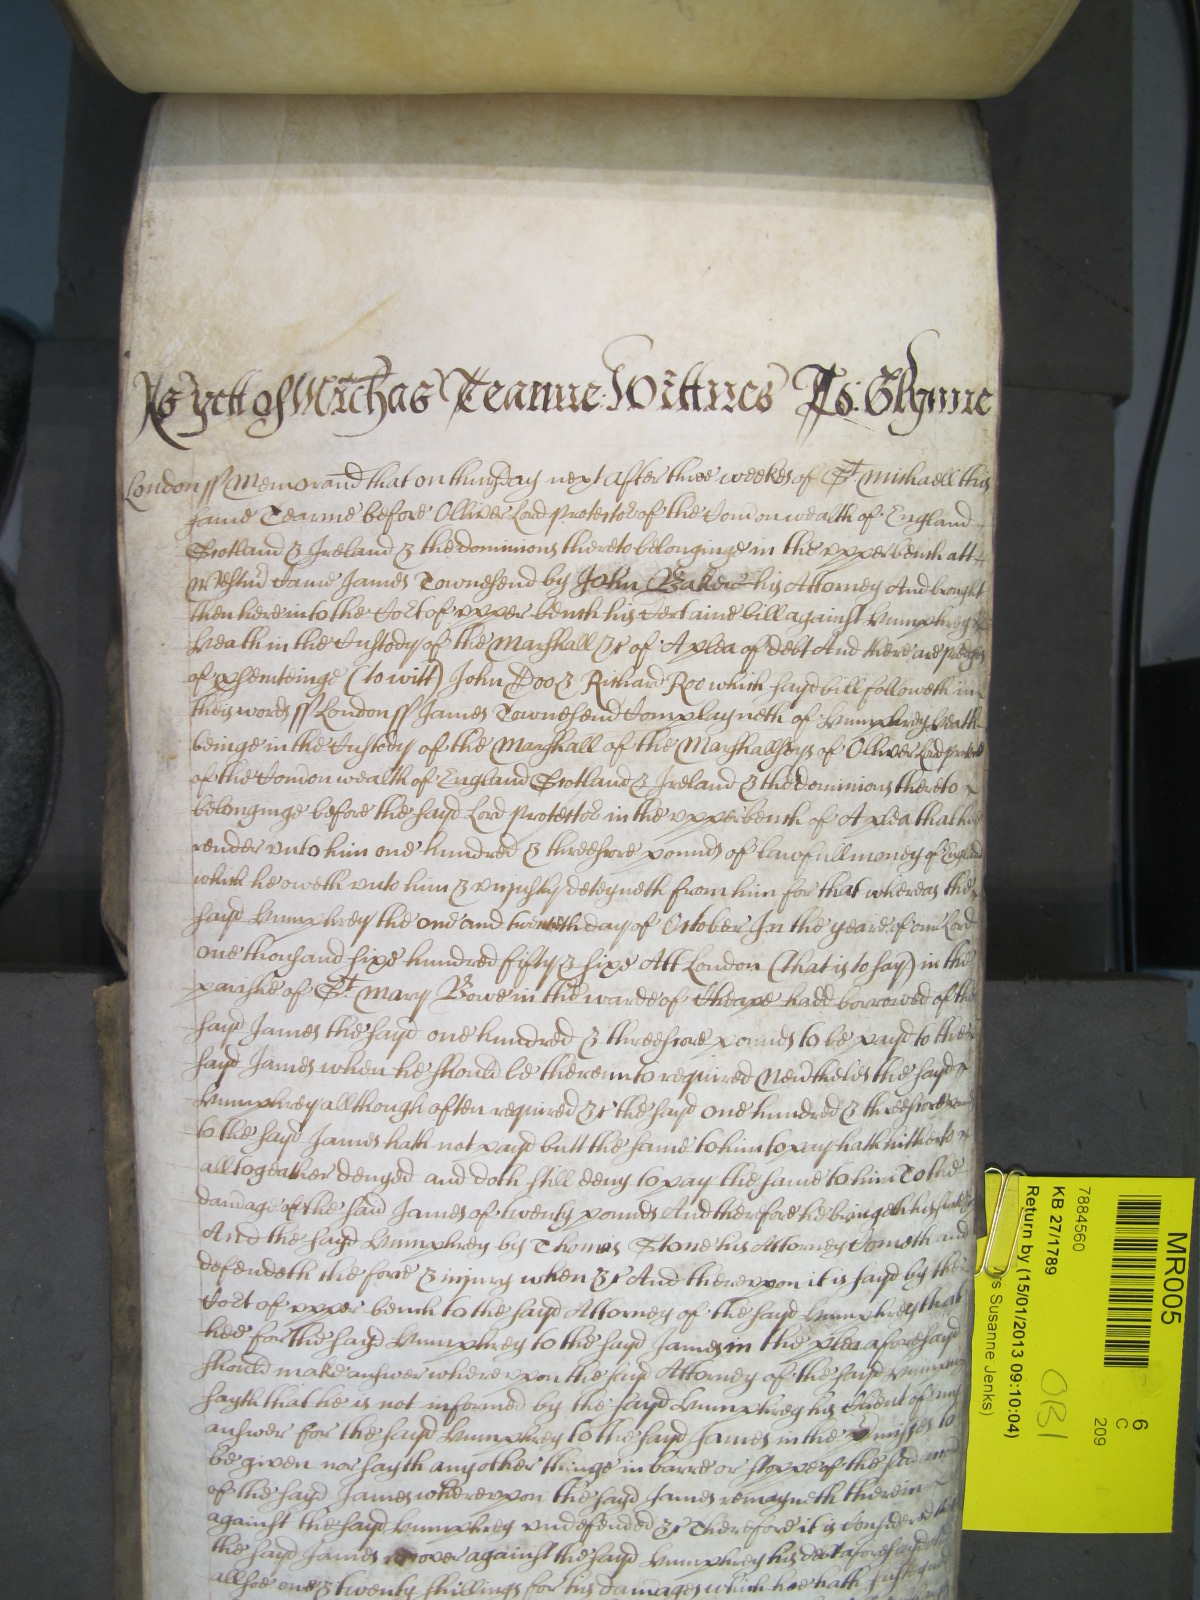 As yett of Michas Tearme: Wittnes Jo: Glynne
London ss Memorand that on thursday next after three weekes of St Michaell this
same Tearme before Olliver Lord Protector of the Comonwealth of England
Scotland & Ireland & the dominions thereto belonginge in the upper bench att
Westmr Came James Townesend by John Baker his Attorney And brought
then here into the Cort of upper bench his Certaine bill against Humphrey
Heath in the Custody of the Marshall &c of A plea of debt And there are pledges
of prosecuteinge (to witt) John Doo & Richard Roo which sayd bill followeth in
theis words ss London ss James Townesend Complayneth of Humphrey Heath
beinge in the Custody of the Marshall of the Marshallseys of Olliver Lord protector
of the Comonwealth of England Scotland & Ireland & the dominions thereto
belonginge before the sayd Lord Protector in the upper bench of A plea that hee
render unto him one hundred & threescore pounds of lawfull money of England
which he oweth unto him & unjustly deteyneth from him for that whereas the
sayd Humphrey the one and twentieth day of October In the yeare of our Lord
one thousand sixe hundred fifty & sixe Att London (that is to say) in the
parishe of St Mary Bowe in the warde of Cheape hadd borrowed of the
sayd James the sayd one hundred & threescore pounds to be payd to the
sayd James when he should be thereunto required Neverthelesse the sayd
Humphrey allthough often required &c the sayd one hundred & threescore pounds
to the sayd James hath not payd butt the same to him to pay hath hitherto
alltogeather denyed and doth still deny to pay the same to him To the
damage of the said James of twenty pounds And therefore he bringeth his suite &c
And the sayd Humphrey by Thomas Stone his Attorney Cometh and
defendeth the force & injury when &c And thereupon it is sayd by the
Cort of upper bench to the sayd Attorney of the sayd Humphrey that
hee for the sayd Humphrey to the sayd James in the plea aforesayd
should make answer whereupon the sayd Attorney of the sayd Humphrey
sayth that he is not informed by the sayd Humphrey his Client of any
answer for the sayd Humphrey to the sayd James in the pmisses to
be given nor sayth any other thinge in barre or stoppe of the said
of the sayd James whereupon the sayd James remayneth therein
against the sayd Humphrey undefended &c Therefore it is Considered that
the sayd James recover against the sayd Humphrey his debt aforesayd And
allsoe one & twenty shillings for his damages which hee hath susteyned
MR005
6
C
209
7884560
KB 27/1789
Return by (15/01/2013 09:10:04)
Susanne Jenks)
OBI